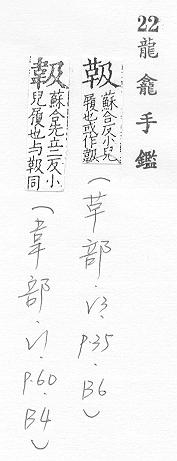 22
龍龕手鑑
靸
蘇合反小兒
履也或作
(革部.V3.P.35.B6)
蘇合先立二反小
兒履也与靸同
(韋部.V1.P.60.B4)